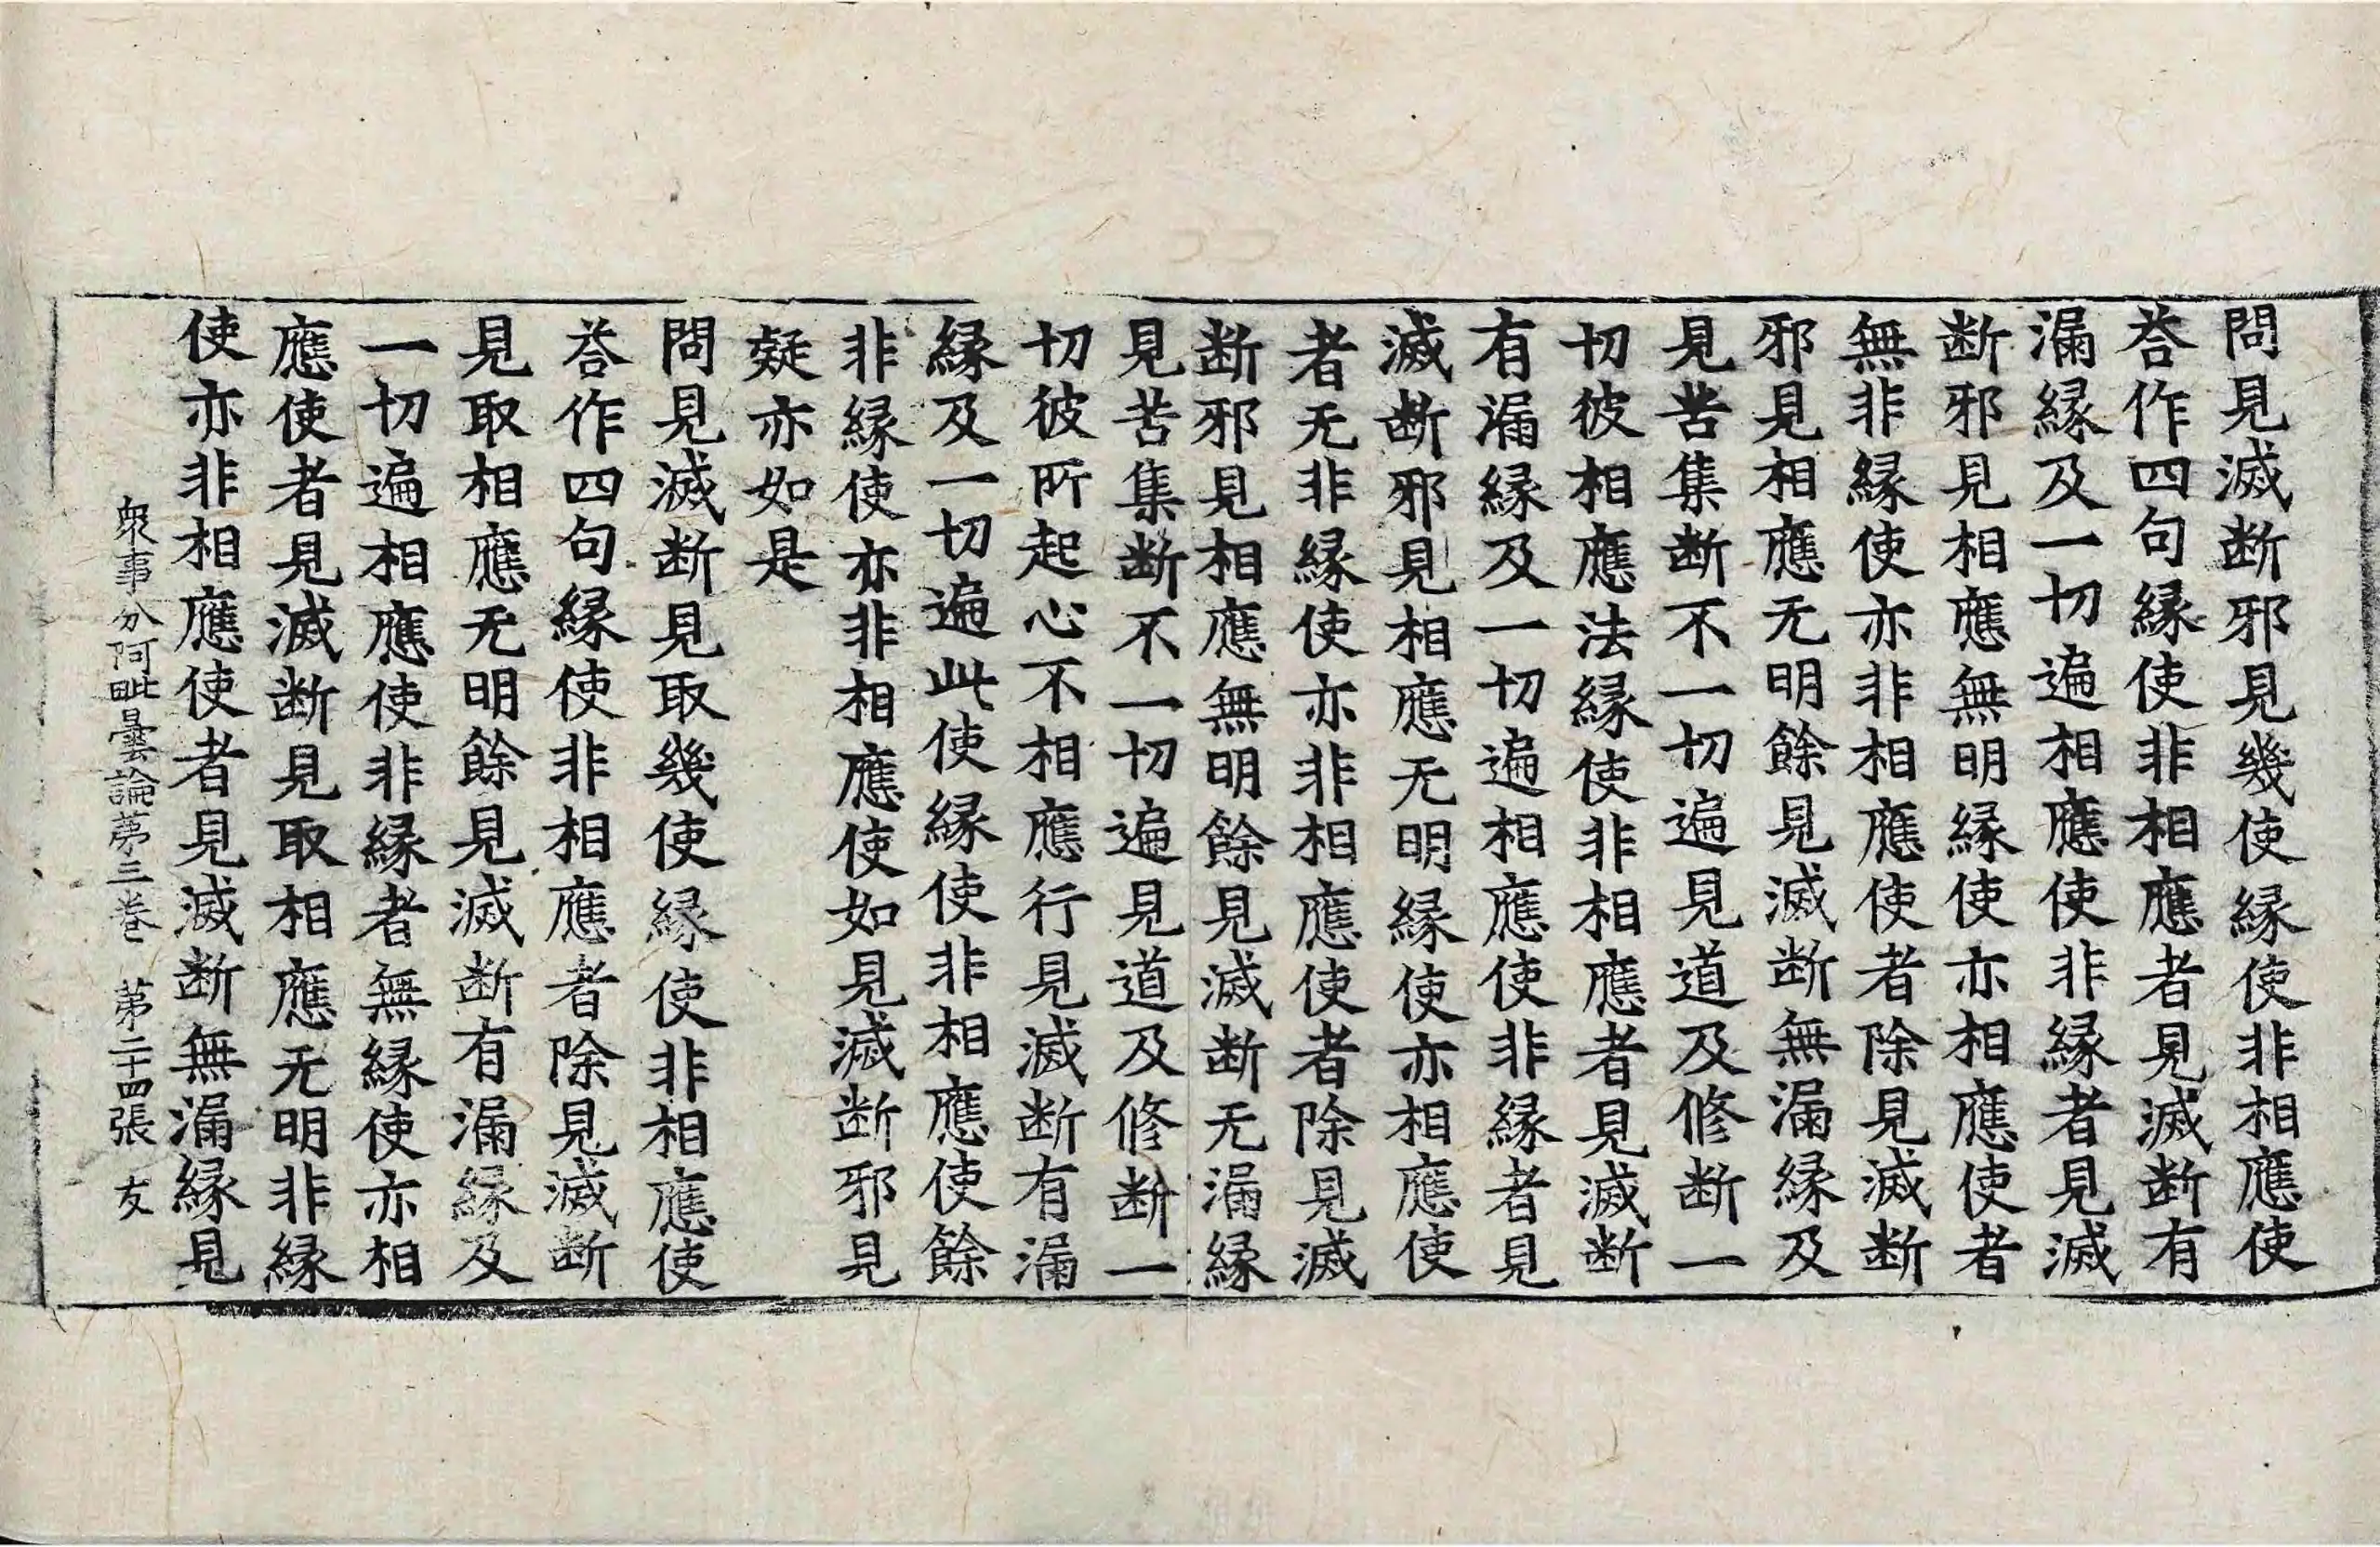 問見滅断邪見幾使縁使非相應使
荅作四句縁使非相應者見滅断有
漏縁及一切遍相應使非縁者見滅
断邪見相應無明縁使亦相應使者
無非縁使亦非相應使者除見滅断
邪見相應无明餘見滅断無漏縁及
見苦集断不一切遍見道及修断一
切彼相應法縁使非相應者見滅断
有漏縁及一切遍相應使非縁者見
滅断邪見相應无明縁使亦相應使
者无非縁使亦非相應使者除見滅
断邪見相應無明餘見滅断无漏縁
見苦集断不一切遍見道及修断一
切彼所起心不相應行見滅断有漏
縁及一切遍此使縁使非相應使餘
非縁使亦非相應使如見滅断邪見
疑亦如是
問見滅断見取幾使縁使非相應使
荅作四句縁使非相應者除見滅断
見取相應无明餘見滅断有漏縁及
一切遍相應使非縁者無縁使亦相
應使者見滅断見取相應无明非縁
使亦非相應使者見滅断無漏縁見
衆事分阿毗曇論苐三巻 苐二十四張 友